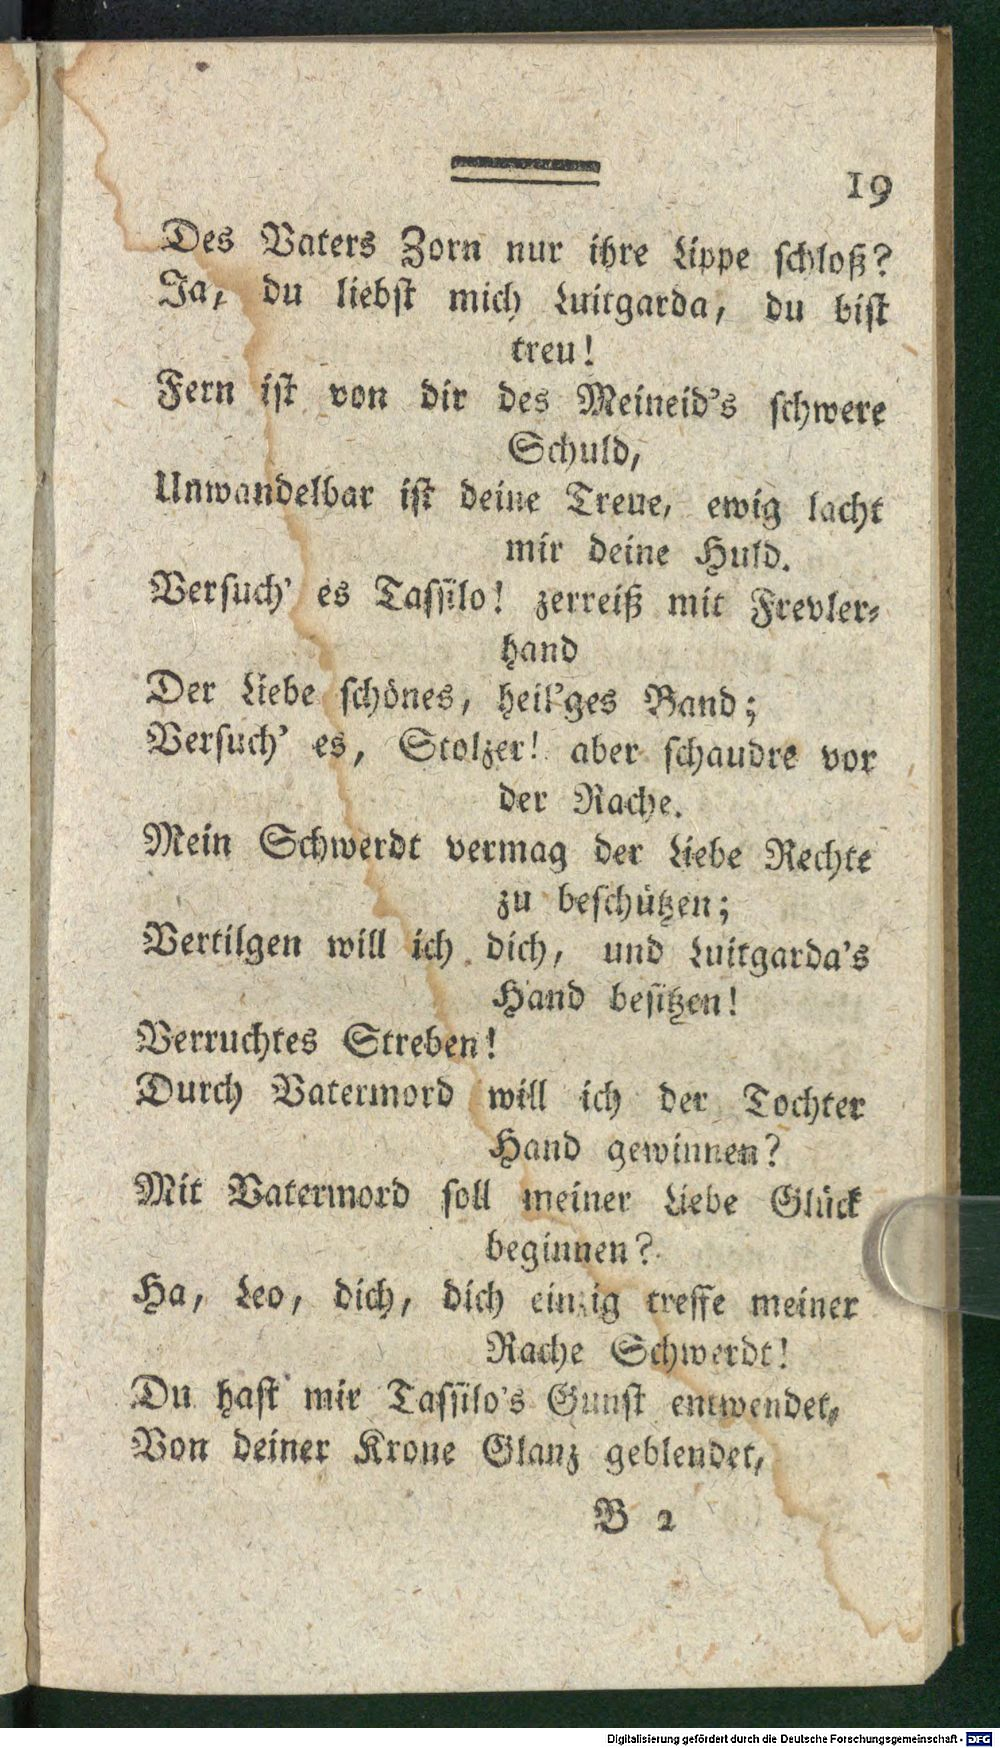 19
Des Vaters Zorn nur ihre Lippe schloß?
Ja, du liebst mich Luitgarda, du bist
treu!
Fern ist von dir des Meineid's schwere
Schuld,
Unwandelbar ist deine Treue, ewig lacht
mir deine Huld.
Versuch' es Tassilo! zerreiß mit Frevler-
hand
Der Liebe schönes, heil'ges Band;
Versuch' es, Stolzer! aber schaudre vor
der Rache.
Mein Schwerdt vermag der Liebe Rechte
zu beschützen;
Vertilgen will ich dich, und Luitgarda's
Hand besitzen!
Verruchtes Streben!
Durch Vatermord will ich der Tochter
Hand gewinnen?
Mit Vatermord soll meiner Liebe Glück
beginnen?
Ha, Leo, dich, dich einzig treffe meiner
Rache Schwerdt!
Du hast mir Tassilo's Gunst entwendet,
Von deiner Krone Glanz geblendet,
B 2
Digitalisierung gefördert durch die Deutsche Forschungsgemeinschaft - DFG